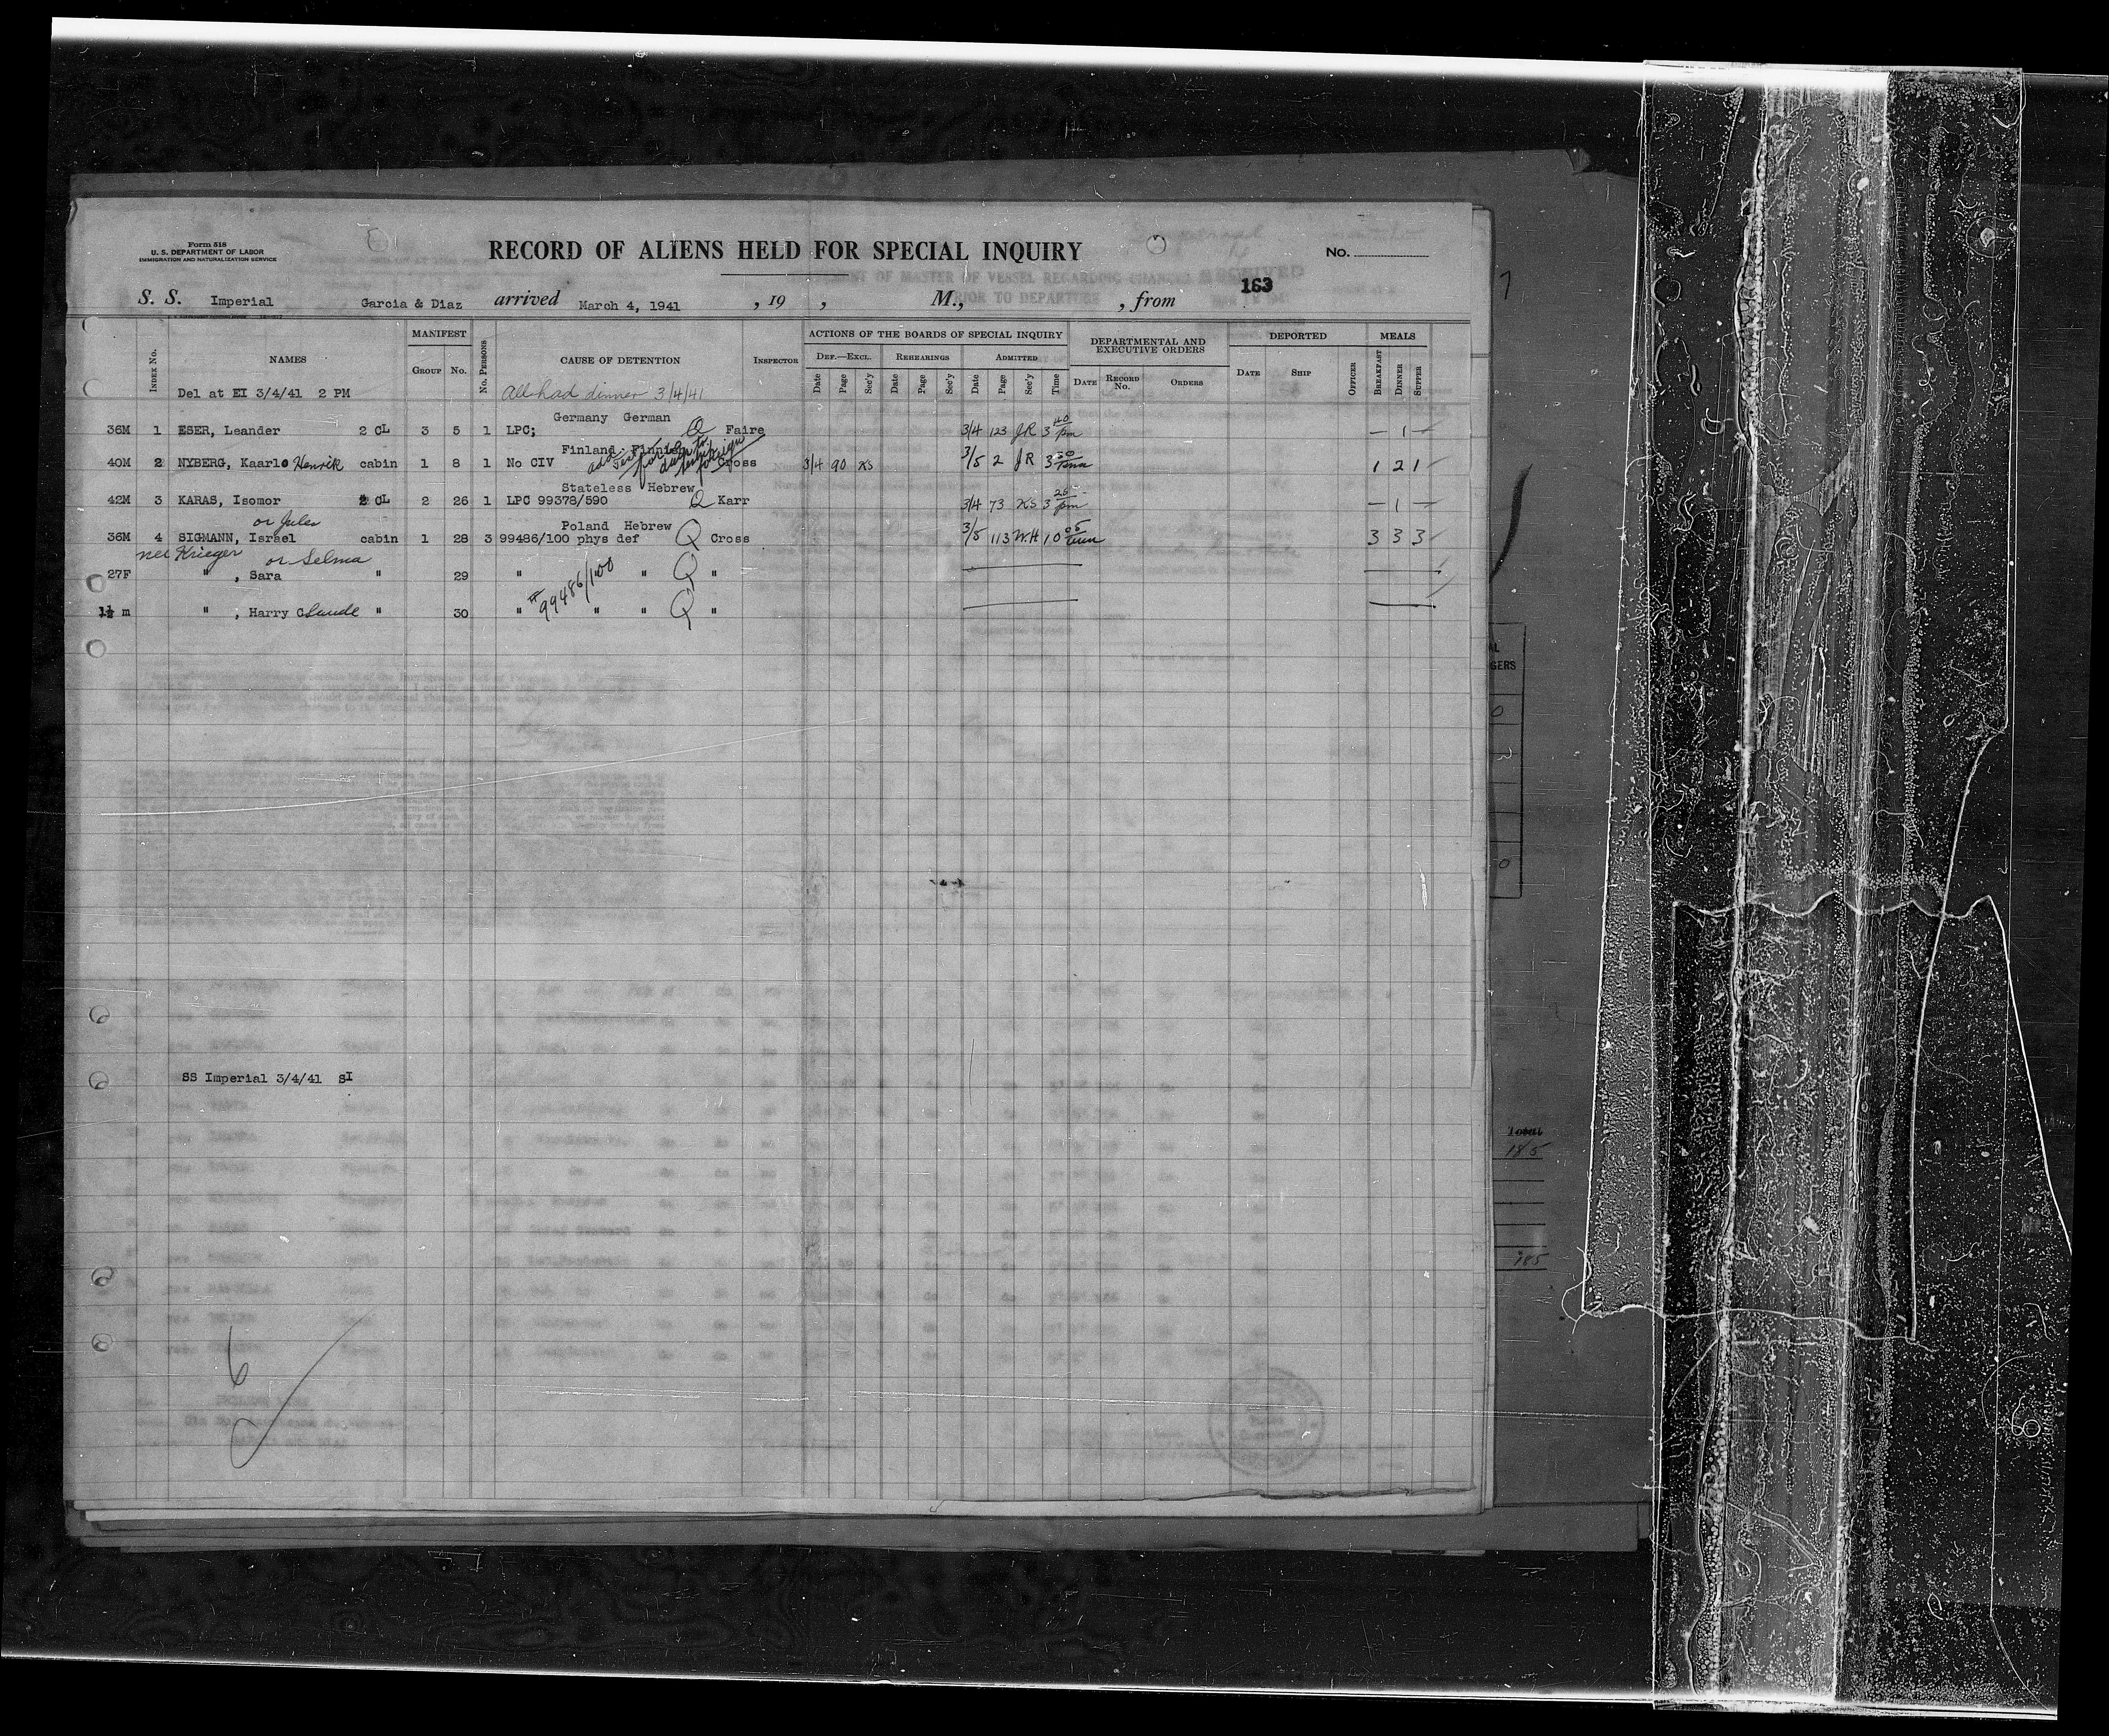 Form 518
U. S. DEPARTMENT OF LABOR
IMMIGRATION AND NATURALIZATION SERVICE
RECORD OF ALIENS HELD FOR SPECIAL INQUIRY
No.
163
S. S. Imperial Garcia & Diaz arrived March 4, 1941 , 19 , M., , from
INDEX No. NAMES MANIFEST GROUP No. No. PERSONS CAUSE OF DETENTION INSPECTOR ACTIONS OF THE BOARDS OF SPECIAL INQUIRY DEPARTMENTAL AND EXECUTIVE ORDERS DEPORTED MEALS
DEF.—EXCL. REHEARINGS ADMITTED
Date Page Sec'y Date Page Sec'y Date Page Sec'y Time DATE RECORD No. ORDERS DATE SHIP OFFICER BREAKFAST DINNER SUPPER
Del at EI 3/4/41 2 PM All had dinner 3/4/41
Germany German
36M 1 ESER, Leander 2 CL 3 5 1 LPC; Q Faire 3/4 123 JR 3 40 pm — 1 —
Finland Finnish
40M 2 NYBERG, Kaarlo Henrik cabin 1 8 1 No CIV Cross 3/4 90 KS 3/5 2 JR 3 1 2 1
Stateless Hebrew
42M 3 KARAS, Isomor 2 CL 2 26 1 LPC 99378/590 Q Karr 3/4 73 KS 3 25 pm — 1 —
or Jules Poland Hebrew
36M 4 SIGMANN, Israel cabin 1 28 3 99486/100 phys def Q Cross 3/5 113 W.H 10 05 3 3 3
nee Krieger or Selma
27F " , Sara " 29 " " Q "
#99486/100
1½ m " , Harry Claude " 30 " " " Q "
SS Imperial 3/4/41 SI
6
Total
185
185